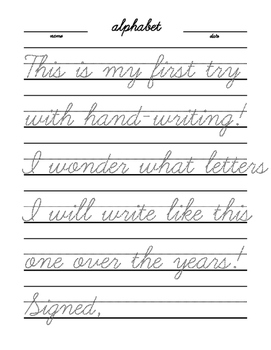 alphabet
name date
This is my first try
with hand-writing!
I wonder what letters
I will write like this
one over the years!
Signed,